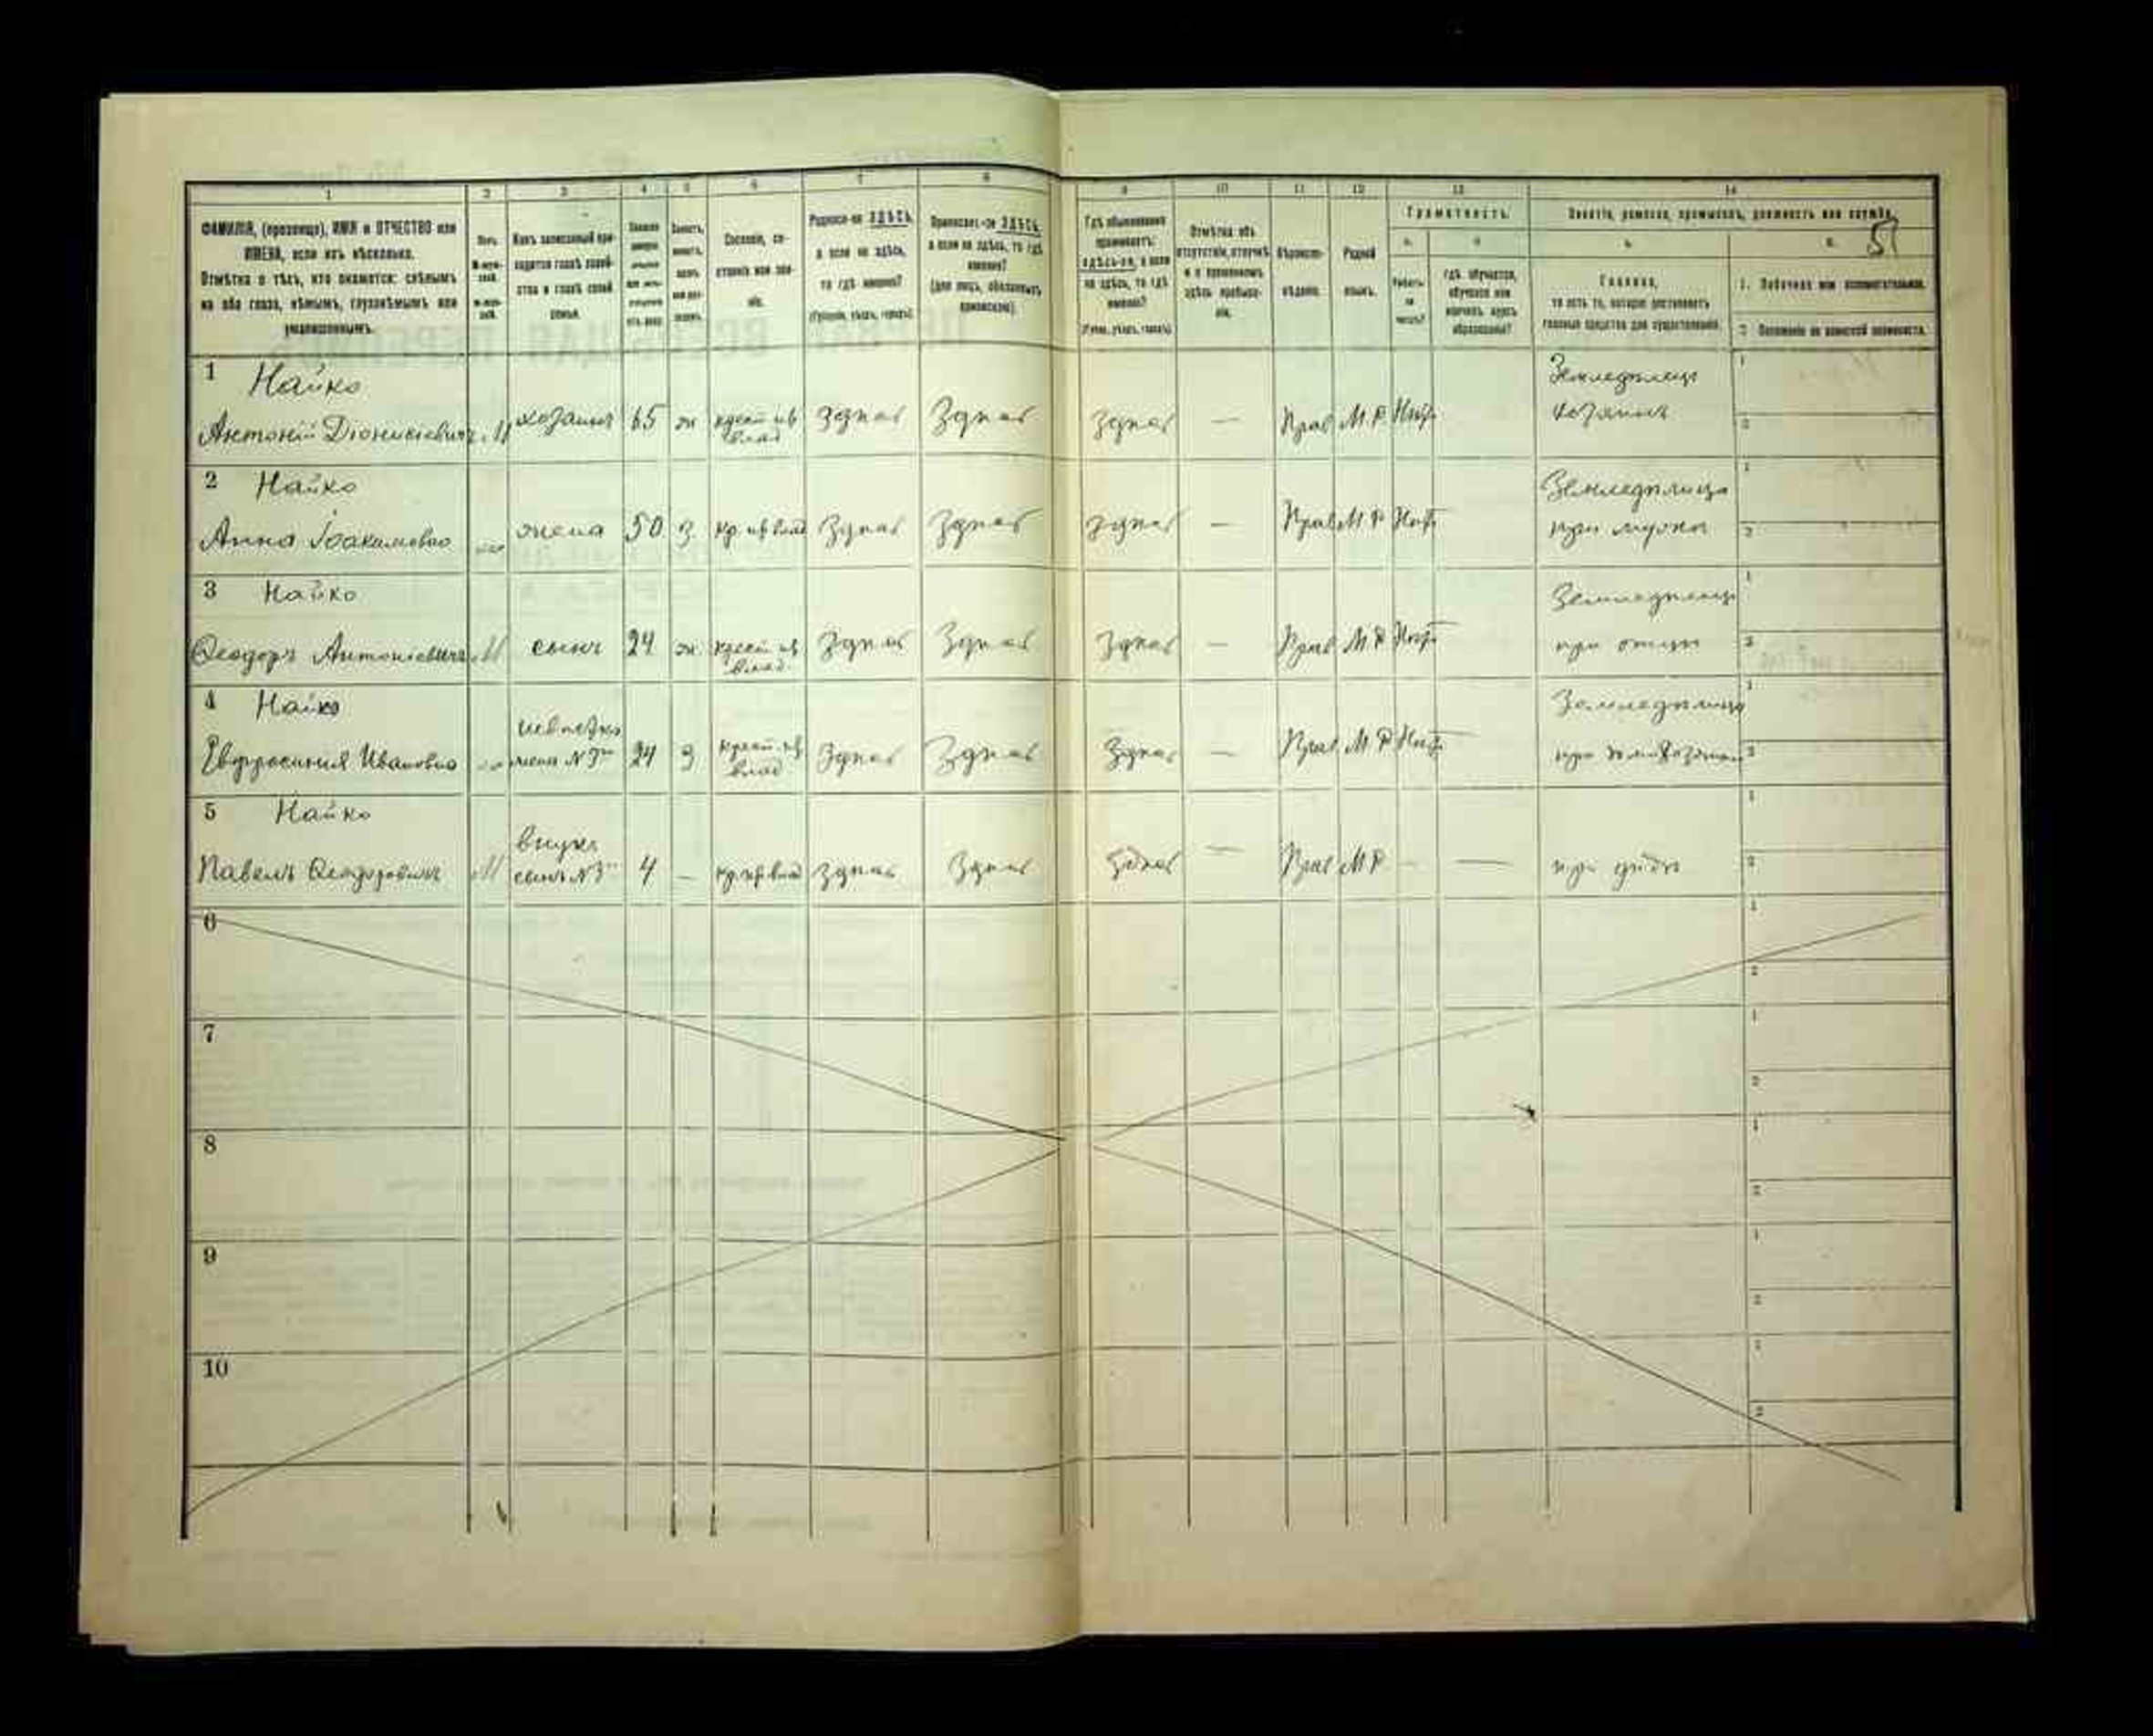 1 2 3 4 5 6 7 8 9 10 11 12 13 14
51
ФАМИЛІЯ, (прозвище), ИМЯ и ОТЧЕСТВО или
ИМЕНА, если ихъ нѣсколько.
Отмѣтка о тѣхъ, кто окажется: слѣпымъ
на оба глаза, нѣмымъ, глухонѣмымъ или
умалишеннымъ.
Какъ записанный при-
ходится главѣ хозяй-
ства и главѣ своей
семьи.
Сословіе, со-
стояніе или зва-
ніе.
Родился-ли ЗДѢСЬ,
а если не здѣсь,
то гдѣ именно?
(Губернія, уѣздъ, городъ).
Приписанъ-ли ЗДѢСЬ,
а если не здѣсь, то гдѣ
именно?
(для лицъ, обязанныхъ
припиской).
Гдѣ обыкновенно
проживаетъ:
здѣсь-ли, а если
не здѣсь, то гдѣ
именно?
(Губер., уѣздъ, городъ).
Отмѣтка объ
отсутствіи, отлучкѣ
и о временномъ
здѣсь пребыва-
ніи.
Вѣроиспо-
вѣданіе.
Родной
языкъ.
Грамотность.
а.
Умѣетъ-
ли
читать?
б.
гдѣ обучается,
обучался или
кончилъ курсъ
образованія?
Занятіе, ремесло, промыселъ, должность или служба.
а.
Главное,
то есть то, которое доставляетъ
главныя средства для существованія.
б.
1. Побочное или вспомогательное.
2. Положеніе по воинской повинности.
1 Найко
Антоній Діонисіевичъ М хозяинъ 65 ж крест. изъ влад Здѣсь Здѣсь Здѣсь — Прав М Р Нѣтъ Земледѣлецъ
хозяинъ
1
2
2 Найко
Анна Іоакимовна жена 50 з кр. изъ влад Здѣсь Здѣсь Здѣсь — Прав М Р Нѣтъ Земледѣлица
при мужѣ
1
2
3 Найко
Ѳеодоръ Антоніевичъ М сынъ 24 ж крест. изъ влад Здѣсь Здѣсь Здѣсь — Прав М Р Нѣтъ Земледѣлецъ
при отцѣ
1
2
4 Найко
Евфросинія Ивановна невѣстка
жена №3го 24 з крест. изъ влад Здѣсь Здѣсь Здѣсь — Прав М Р Нѣтъ Земледѣлица
при
1
2
5 Найко
Павелъ Ѳеодоровичъ М внукъ
сынъ №3го 4 — кр. изъ влад Здѣсь Здѣсь Здѣсь — Прав М Р — — при дѣдѣ
1
2
6
1
2
7
1
2
8
1
2
9
1
2
10
1
2